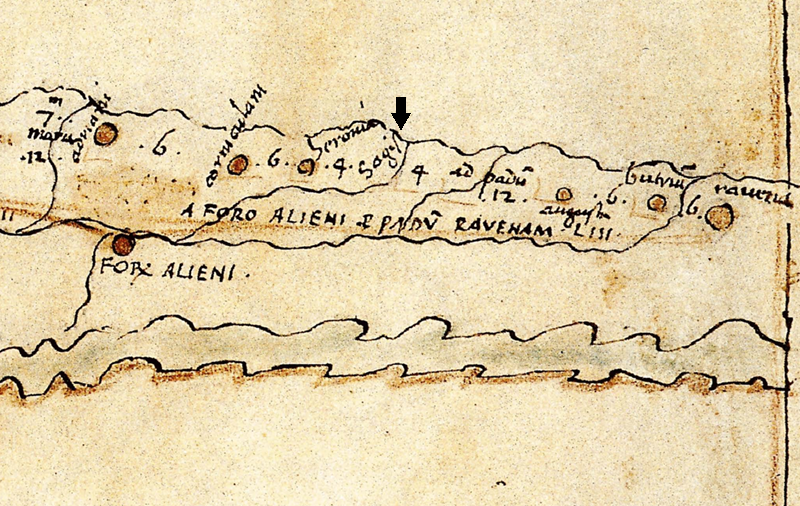 7.
.12.
adriani
.6.
corniculani
.6.
.4.
sagis
4 ad
padū
.12.
augusta
.6.
butriū
6.
ravenna
A FORO ALIENI P PADŪ RAVENAM LIII
II
ALIENI .